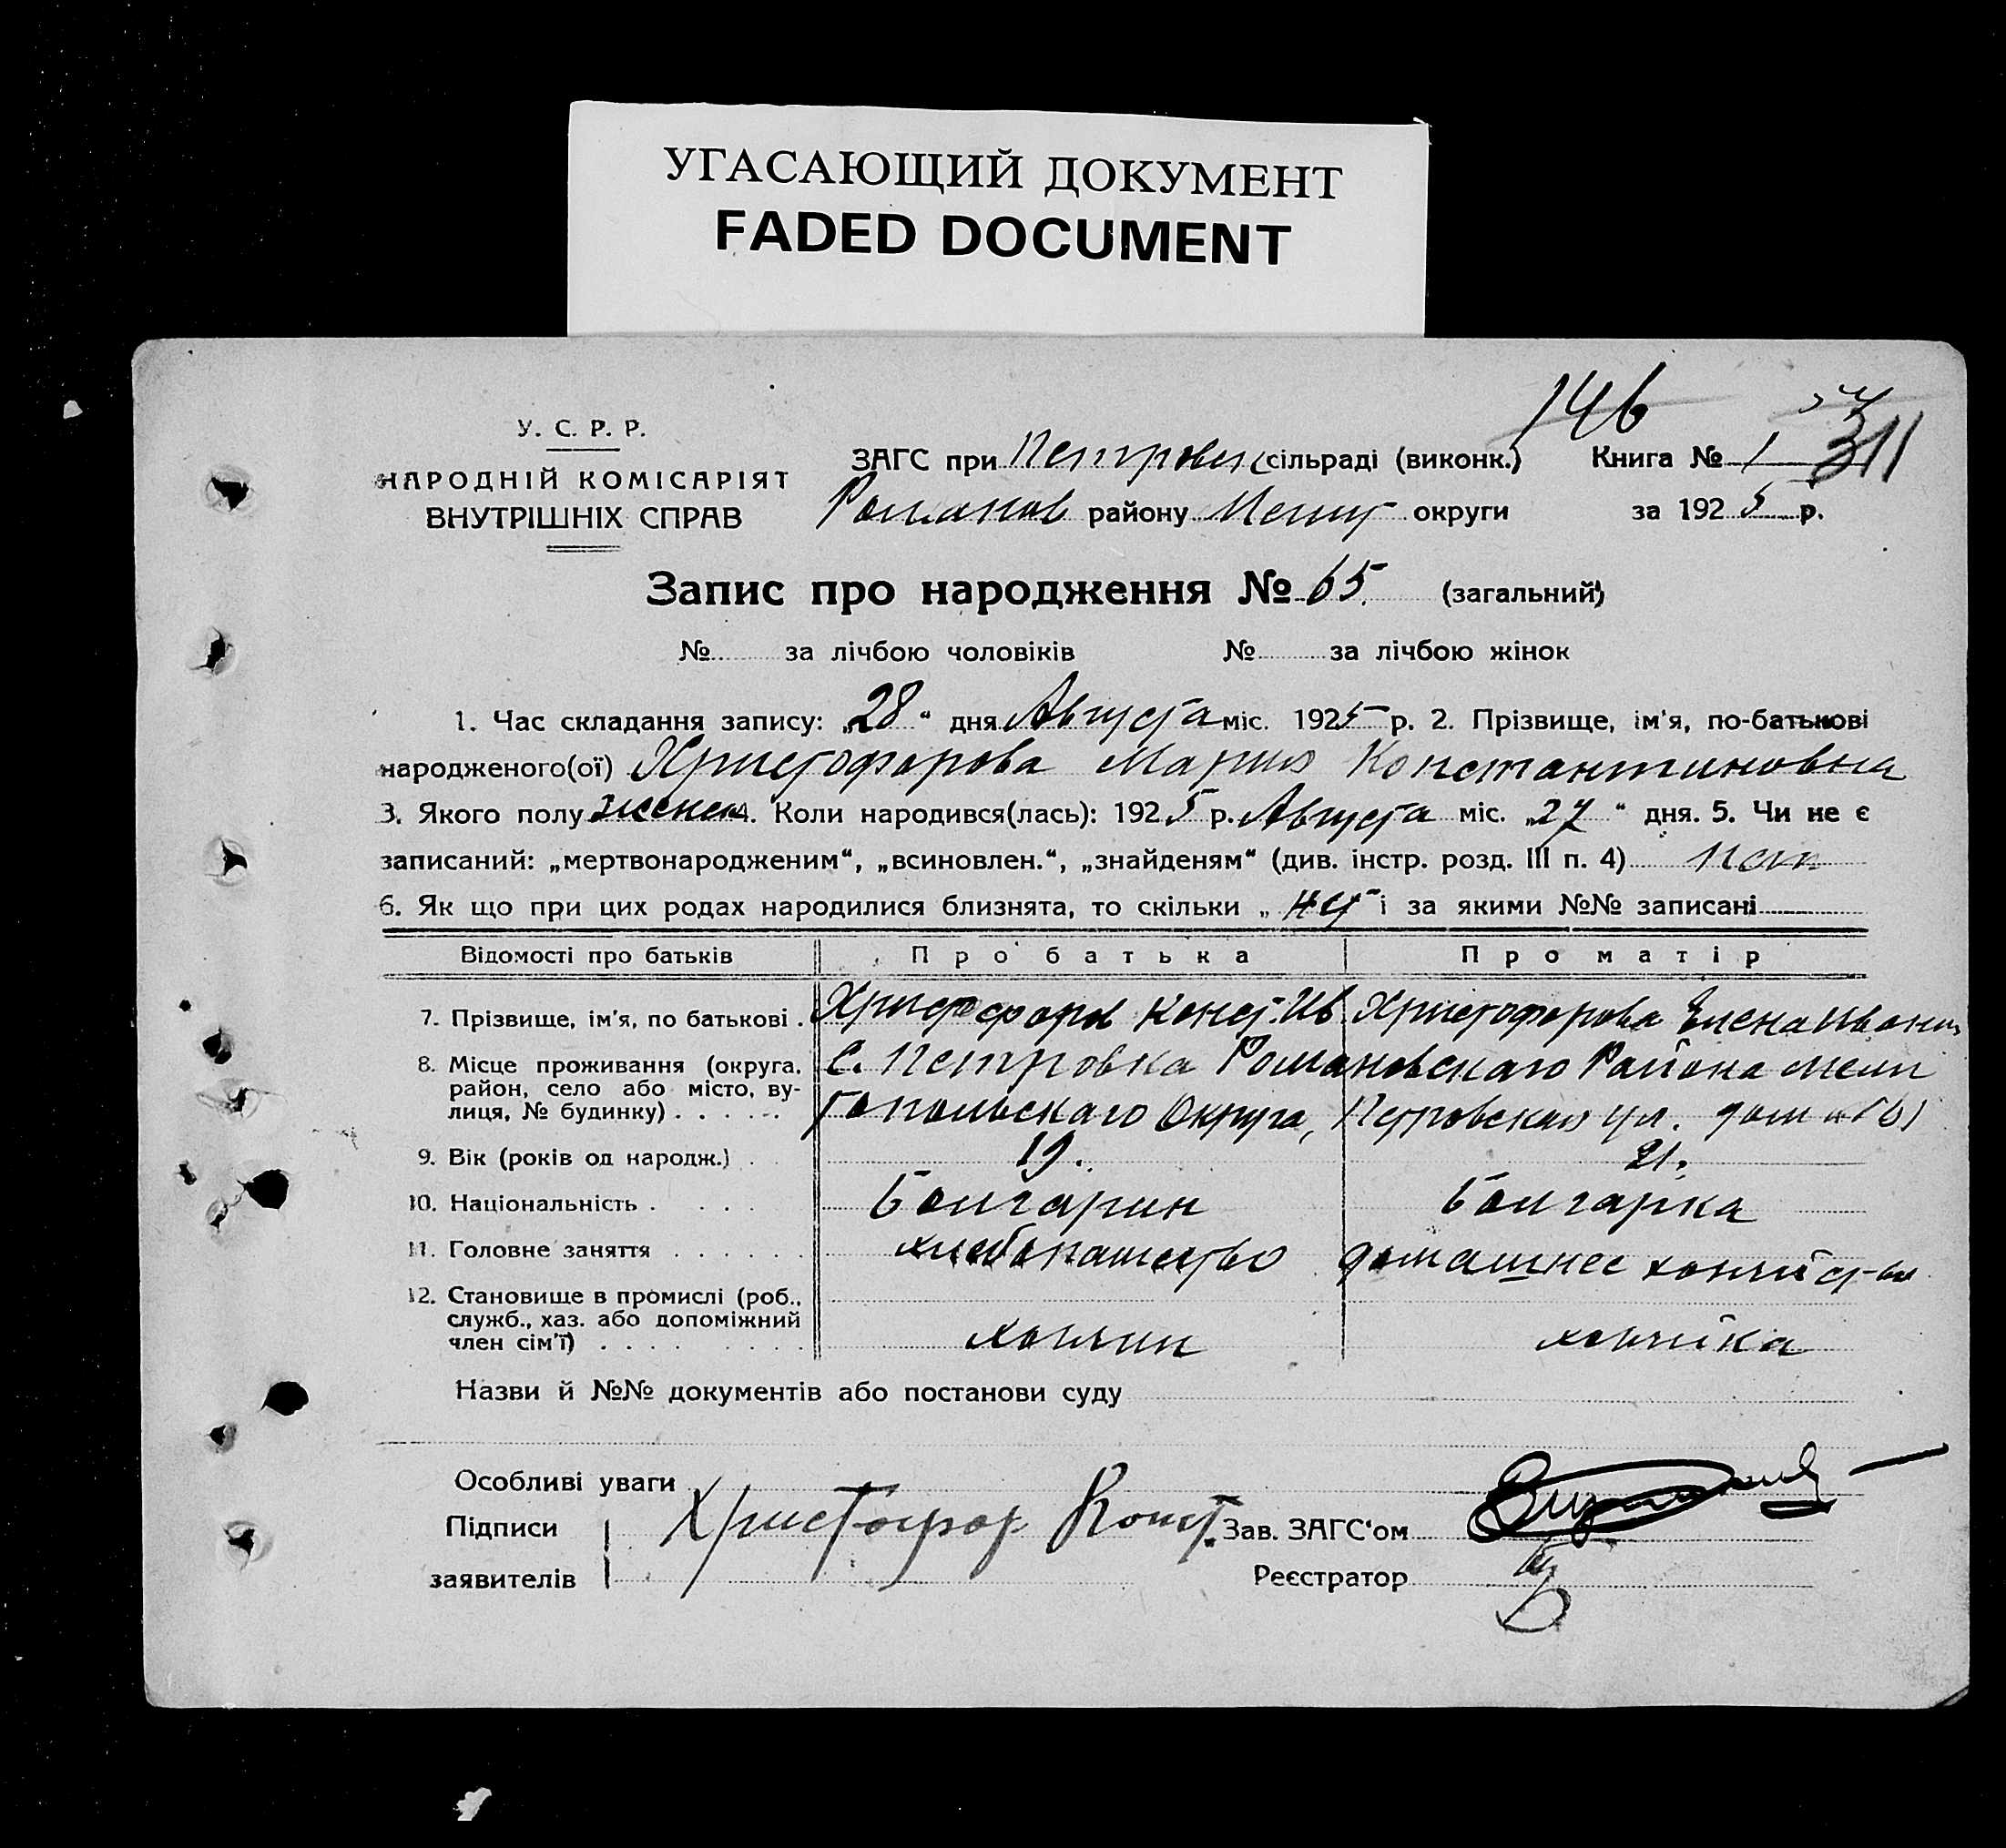 УГАСАЮЩИЙ ДОКУМЕНТ
FADED DOCUMENT
146
311
У. С. Р. Р.
НАРОДНІЙ КОМІСАРІЯТ
ВНУТРІШНІХ СПРАВ
ЗАГС при Петровск сільраді (виконк.) Книга № 1
Романов району Мелит округи за 1925 р.
Запис про народження № 65. (загальний)
№ за лічбою чоловіків № за лічбою жінок
1. Час складання запису: „28“ дня Августа міс. 1925 р. 2. Прізвище, ім'я, по-батькові
народженого(ої) Христофорова Мария Константиновна
3. Якого полу женск 4. Коли народився(лась): 1925 р. Августа міс. „27“ дня. 5. Чи не є
записаний: „мертвонародженим“, „всиновлен.“, „знайденям“ (див. інстр. розд. III п. 4) Нет
6. Як що при цих родах народилися близнята, то скільки „ нет і за якими №№ записані
Відомості про батьків Про батька Про матір
7. Прізвище, ім'я, по батькові . Христофоров Конст. Ив. Христофорова Елена Иванов
8. Місце проживання (округа, район, село або місто, вулиця, № будинку) . . . . . с. Петровка Романовскаго Района Мели
топольскаго Округа, Петровская ул. дом №
9. Вік (років од народж.) . 19. 21.
10. Національність . . . . Болгарин Болгарка
11. Головне заняття . . . . . . хлебопашество домашнее хозяйство
12. Становище в промислі (роб., служб., хаз. або допоміжний член сім'ї) . . . . хозяин хозяйка
Назви й №№ документів або постанови суду
Особливі уваги
Підписи Христофор Конст. Зав. ЗАГС'ом
заявителів Реєстратор